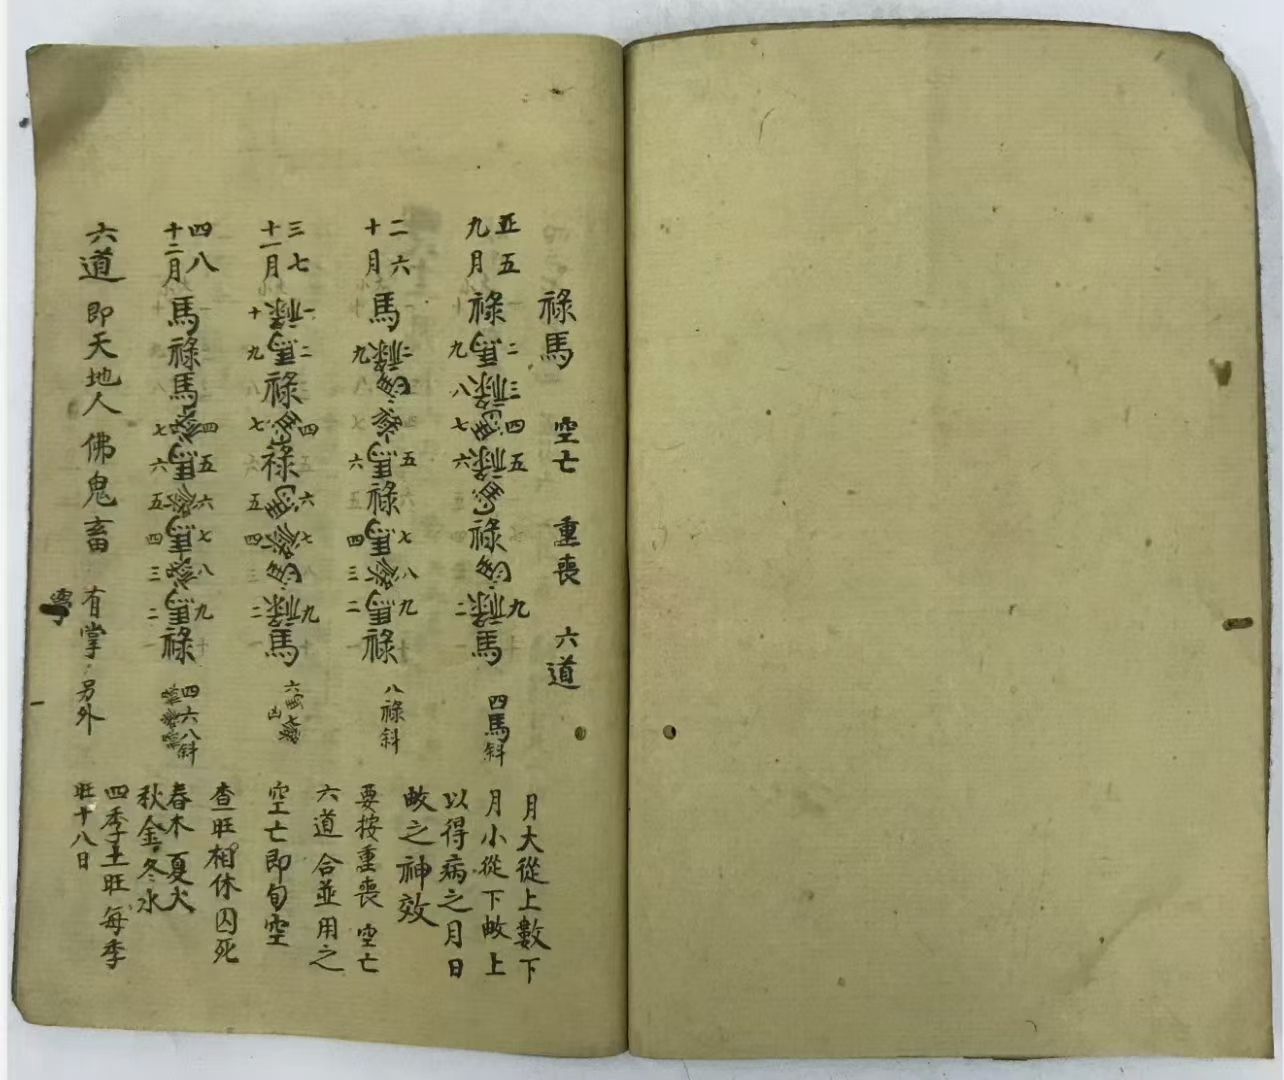 祿馬 空亡 重喪 六道
正五九月
祿馬祿馬祿馬祿馬祿馬
二三四五九
九八七六二
四馬斜
二六十月
馬祿馬祿馬祿馬祿馬祿
二五七八九
九六四三二
八祿斜
三七十一月
祿馬祿馬祿馬祿馬祿馬
一二四六七九
十九七五四二
四八十二月
馬祿馬祿馬祿馬祿馬祿
四五六七八九
七六五四三二
四六八斜
六道 即天地人佛鬼畜 有掌另外
月大從上數下
月小從下數上
以得病之月日
數之神效
要按重喪 空亡
六道合並用之
空亡即旬空
查旺相休囚死
春木夏火
秋金冬水
四季土旺每季
旺十八日